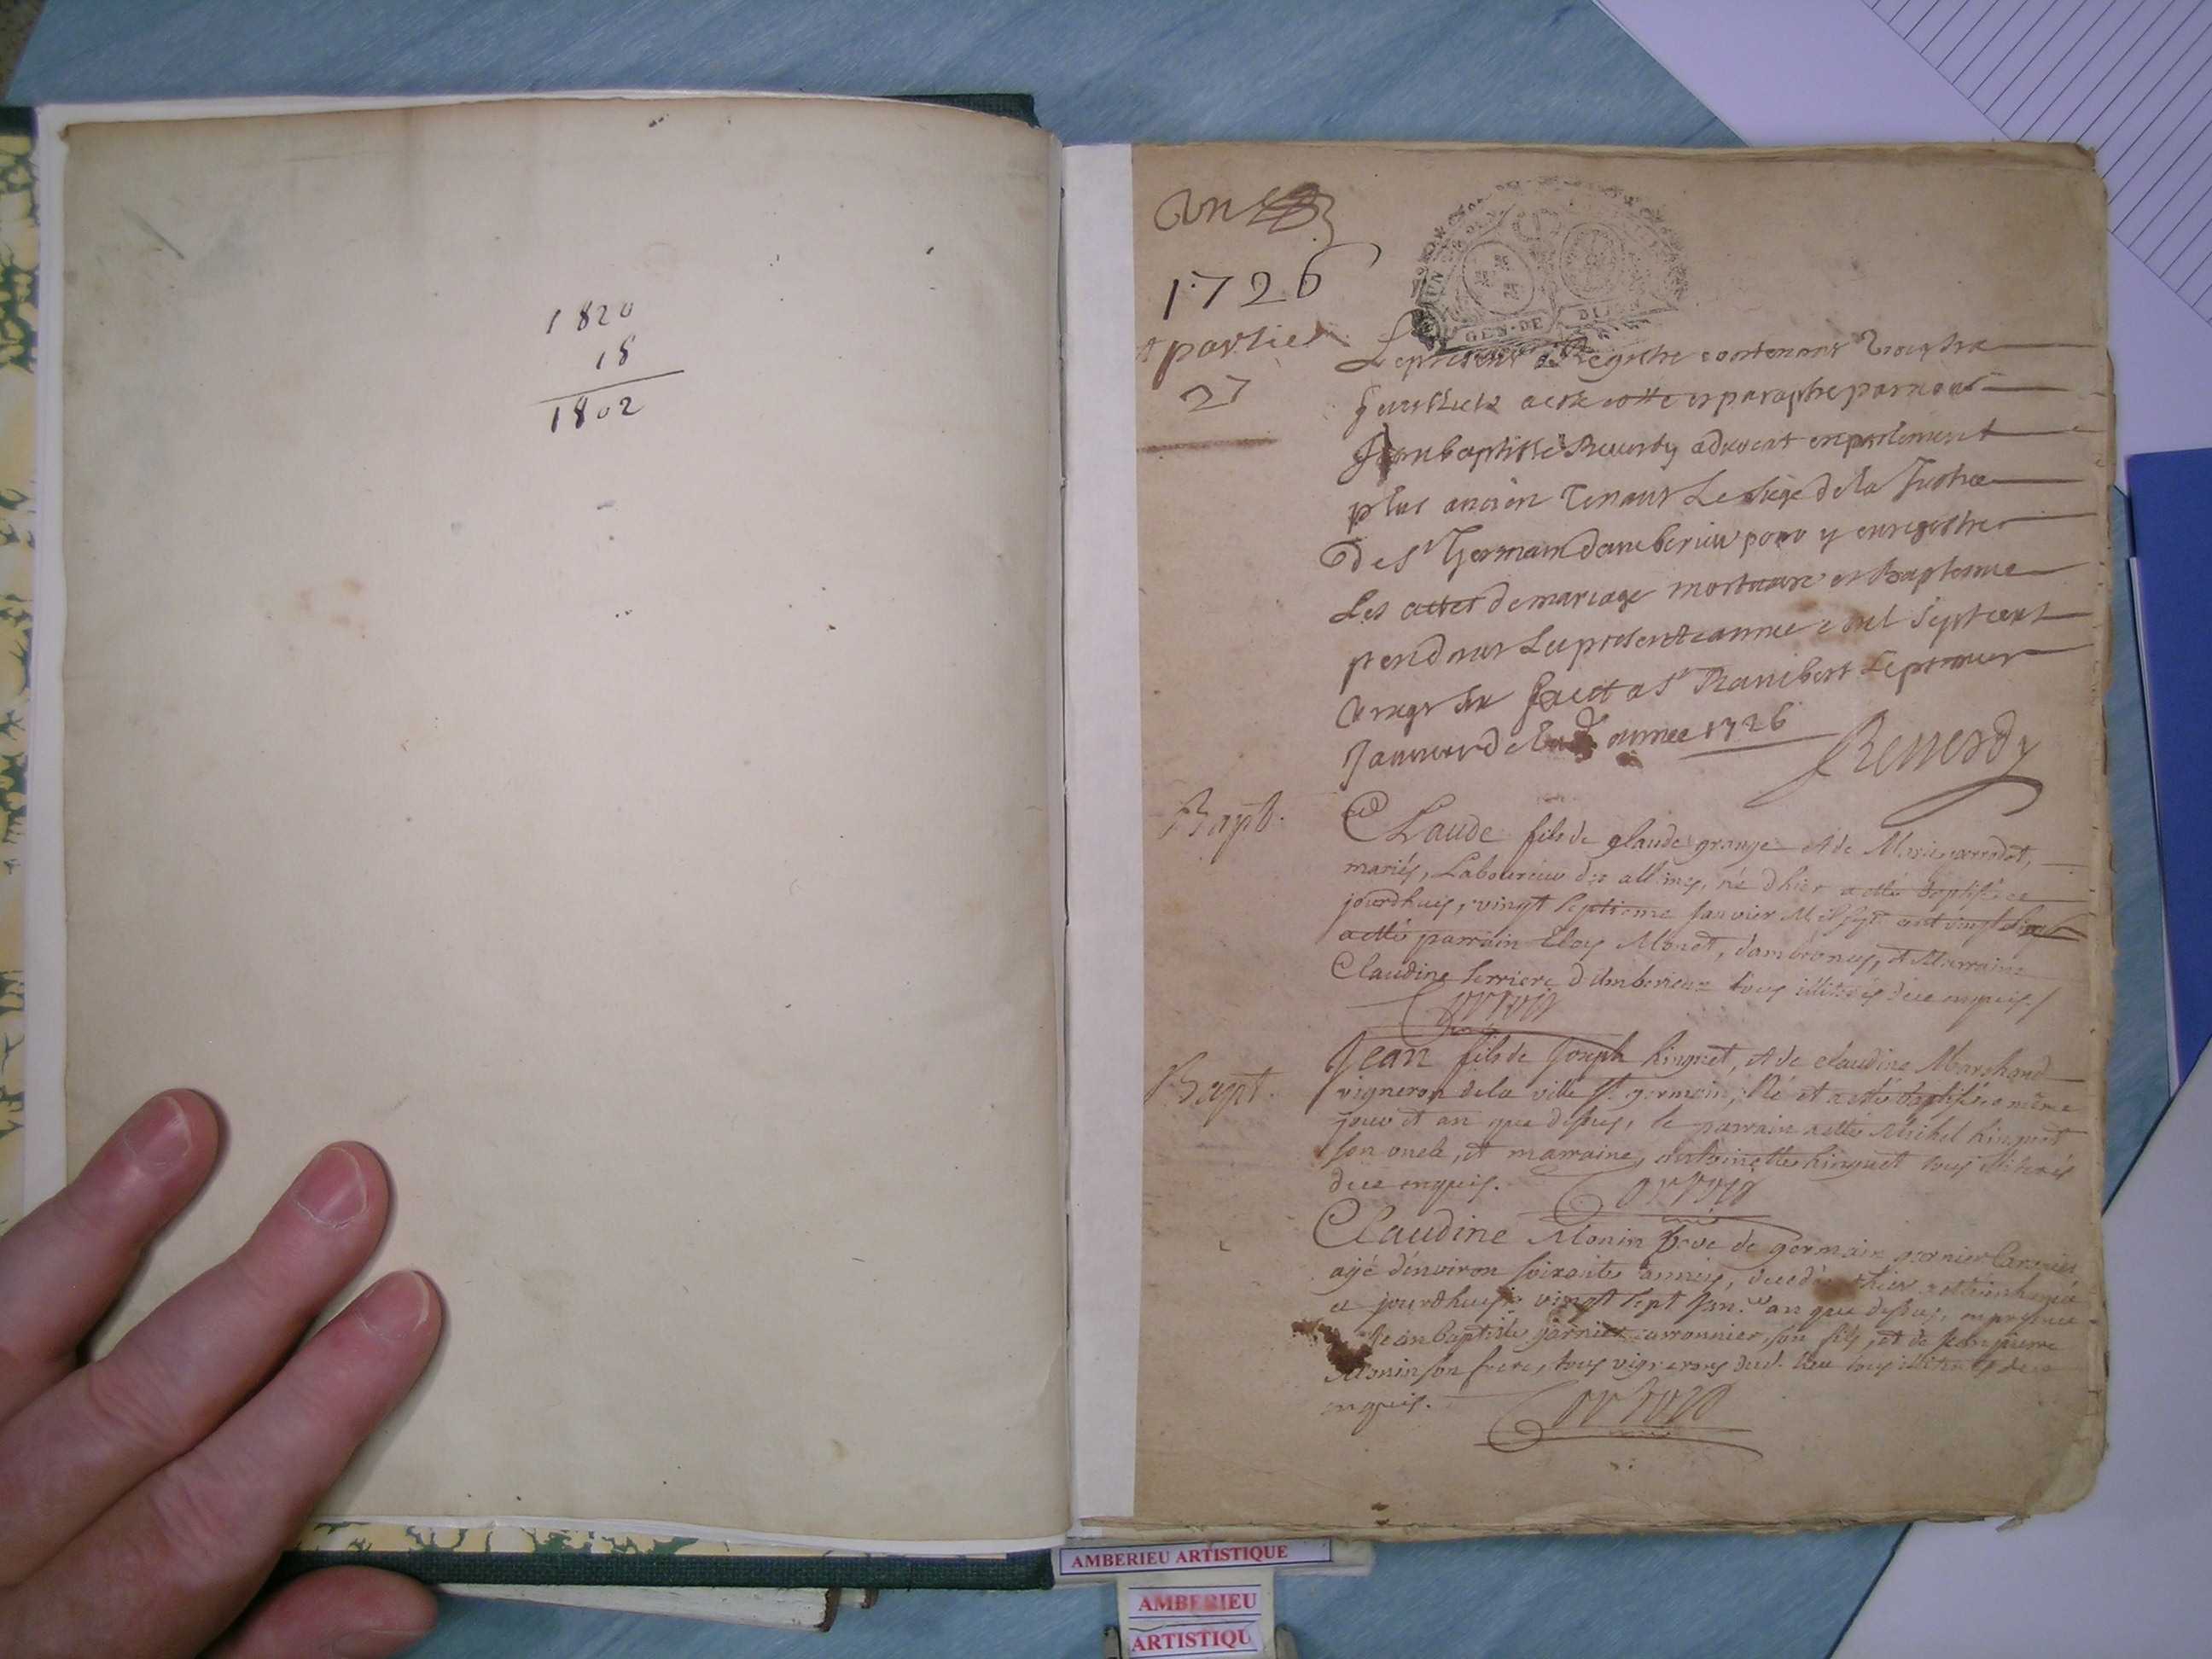 1820
18
1802
1726
27
GEN·DE DI
Le present Registre contenant
Jean baptiste Reverdy advocat en parlement
plus ancien tenant Le siege de la Justice
de St Germain d'amberieu pour y enregistrer
Les actes de mariage mortuaire et Baptesme
pendant La presente année mil sept cent
vingt six fait a St Rambert Le premier
Janvier de année 1726
Reverdy
Bapt.
Claude fils de glaude grange et de Marie
mariés, Laboureur des allimes, né d'hier a esté baptisé ce
jourdhuy, vingt septieme Janvier Mil sept cent vingt six
a esté parrain Eloy Monet, d'ambronay, et Marraine
Claudine ferriere d'Amberieux tous illiterés de ce enquis.
Bapt.
Jean fils de Joseph hinguet, et de claudine Marchand
vigneron de la ville St germain, Né et a esté baptisé a même
jour et an que dessus, le parrain a esté Michel hinguet
son oncle, et marraine, antoinette hinguet tous illiterés
de ce enquis.
Claudine Monin de germain garnier
agé d'environ soixante années, decedé hier
ce jourdhuy vingt sept Jan. an que dessus, en presence
Jean baptiste garnier son fils, et de Jean pierre
Monin son frere, tous vignerons dud. lieu tous illiterés de ce
enquis.
AMBERIEU ARTISTIQUE
AMBERIEU
ARTISTIQU